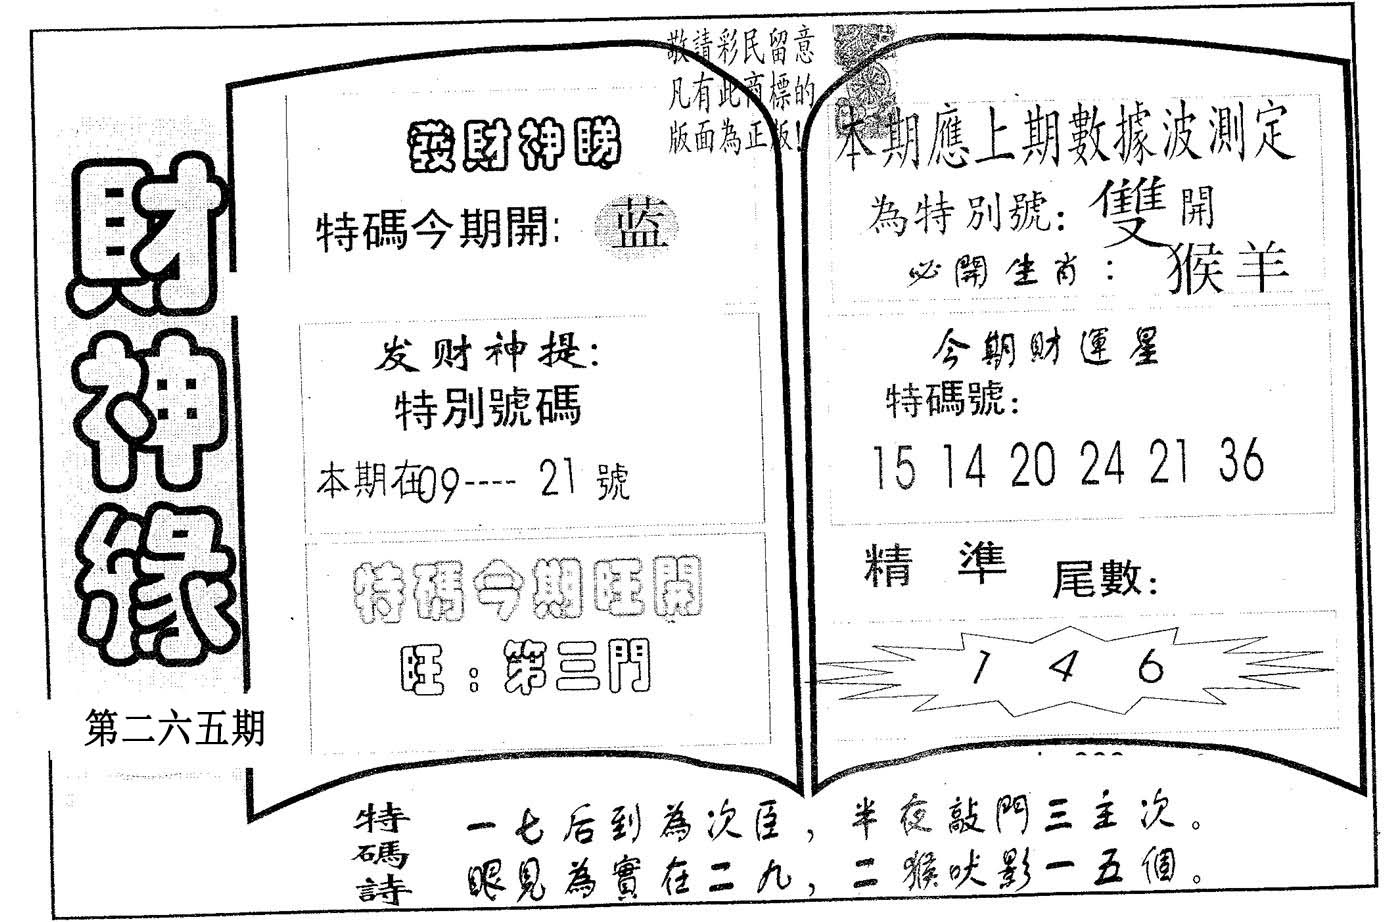 敬請彩民留意
凡有此商標的
版面為正版!
財神緣
第二六五期
發財神睇
特碼今期開:蓝
发财神提:
特別號碼
本期在09----21號
特碼今期旺開
旺:第三門
本期應上期數據波測定
為特別號:雙開
必開生肖:猴羊
今期財運星
特碼號:
15 14 20 24 21 36
精準尾數:
1 4 6
特碼詩
一七后到為次臣,半夜敲門三主次。
眼見為實在二九,二猴吠影一五個。